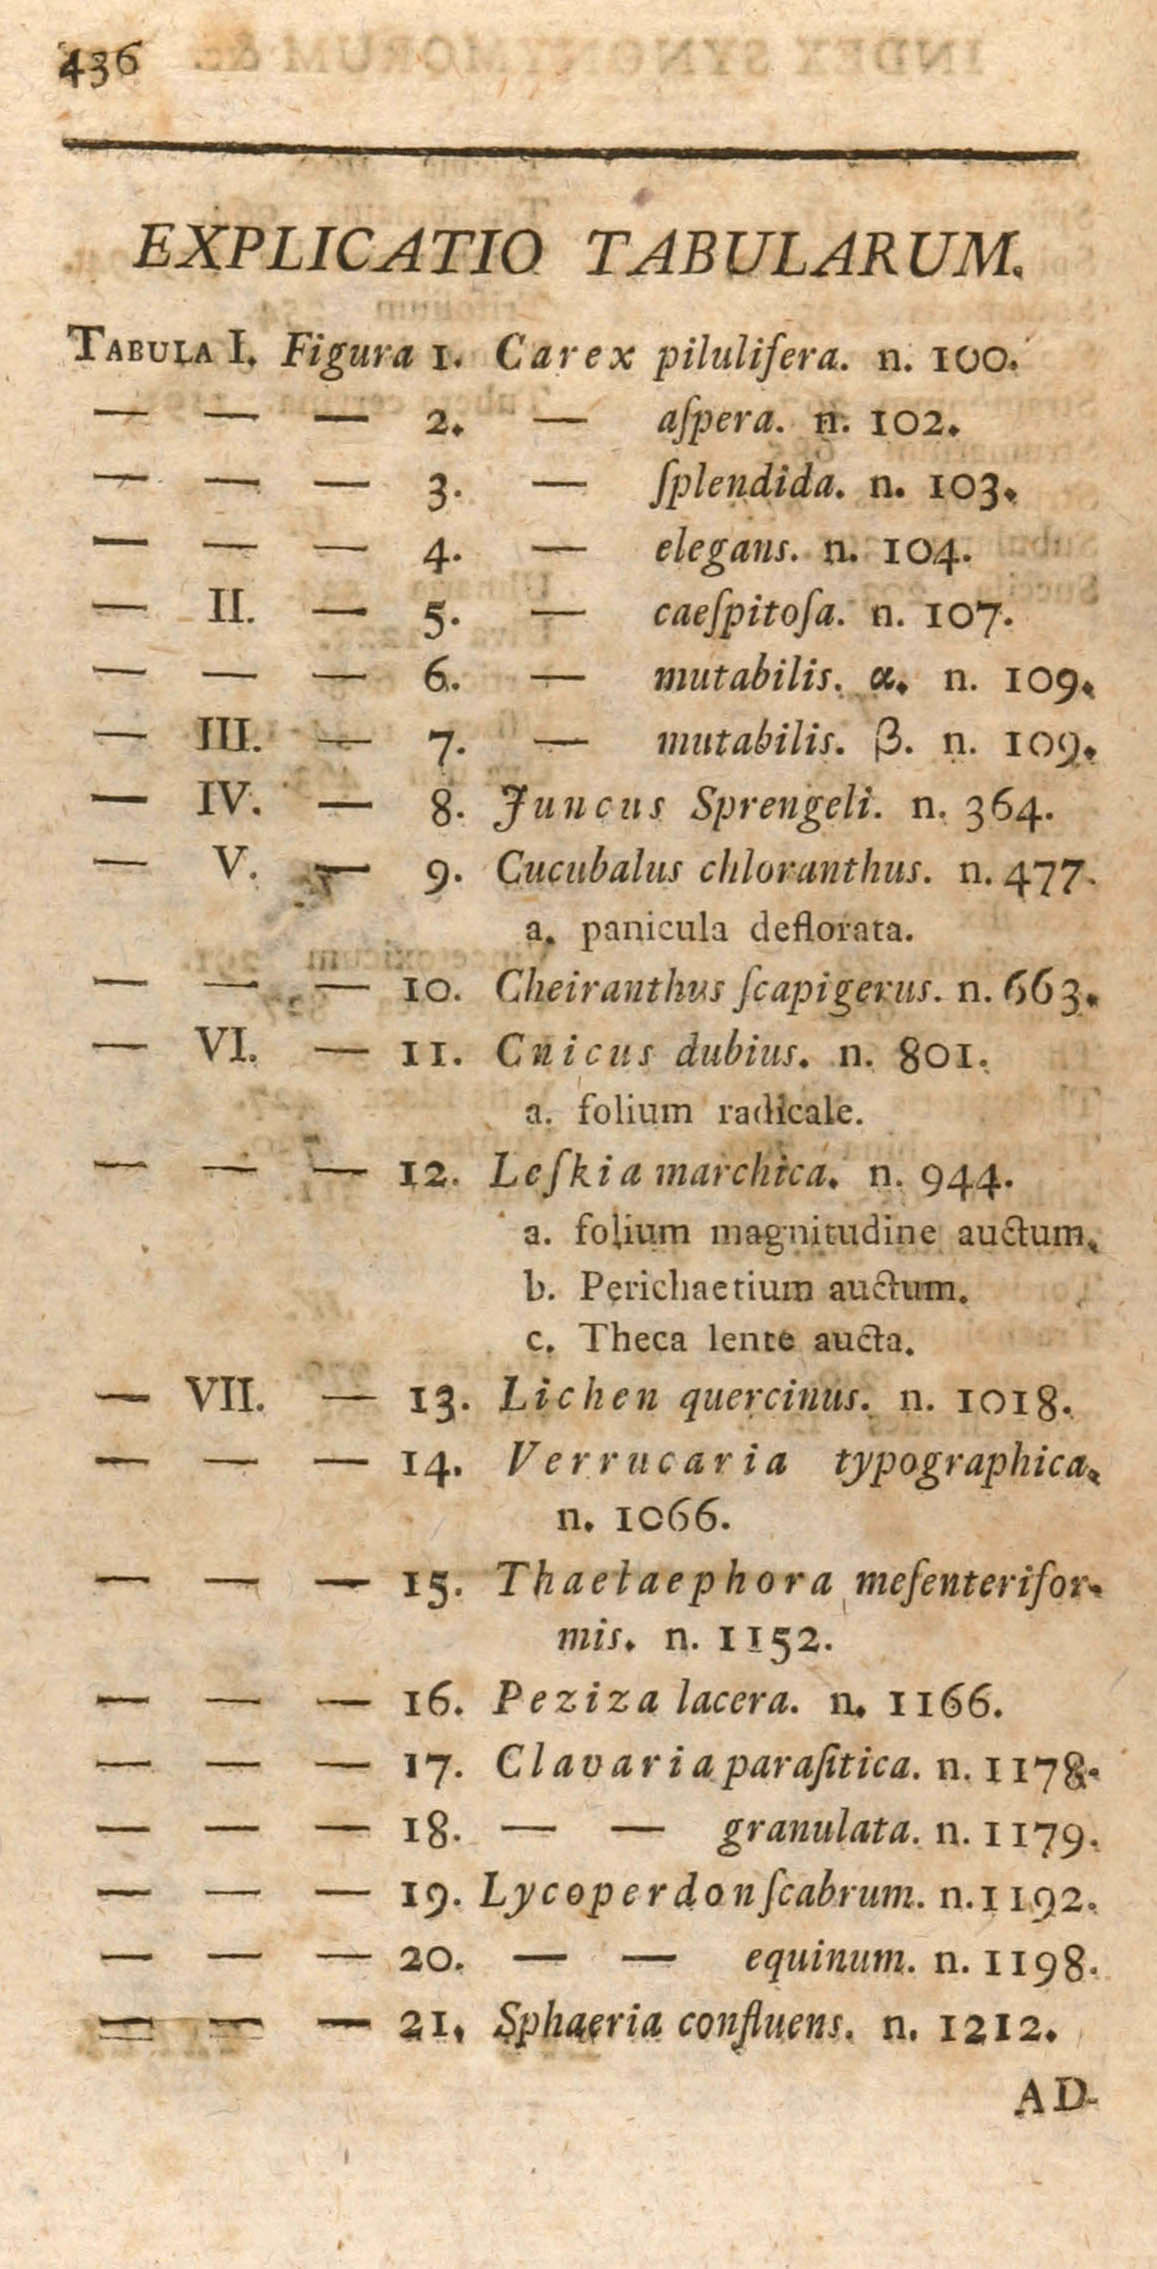 436
EXPLICATIO TABULARUM.
TABULA I. Figura 1. Carex piluliſera. n. 100.
— — — 2. — aſpera. n. 102.
— — — 3. — ſplendida. n. 103.
— — — 4. — elegans. n. 104.
— II. — 5. — caeſpitoſa. n. 107.
— — — 6. — mutabilis. α. n. 109.
— III. — 7. — mutabilis. β. n. 109.
— IV. — 8. Juncus Sprengeli. n. 364.
— V. — 9. Cucubalus chloranthus. n. 477.
a. panicula deflorata.
— — — 10. Cheiranthus ſcapigerus. n. 663.
— VI. — 11. Cnicus dubius. n. 801.
a. folium radicale.
— — — 12. Leſkia marchica. n. 944.
a. folium magnitudine auctum.
b. Perichaetium auctum.
c. Theca lente aucta.
— VII. — 13. Lichen quercinus. n. 1018.
— — — 14. Verrucaria typographica.
n. 1066.
— — — 15. Thaelaephora meſenterifor-
mis. n. 1152.
— — — 16. Peziza lacera. n. 1166.
— — — 17. Clavaria paraſitica. n. 1178.
— — — 18. — — granulata. n. 1179.
— — — 19. Lycoperdon ſcabrum. n. 1192.
— — — 20. — — equinum. n. 1198.
— — — 21. Sphaeria confluens. n. 1212.
AD-